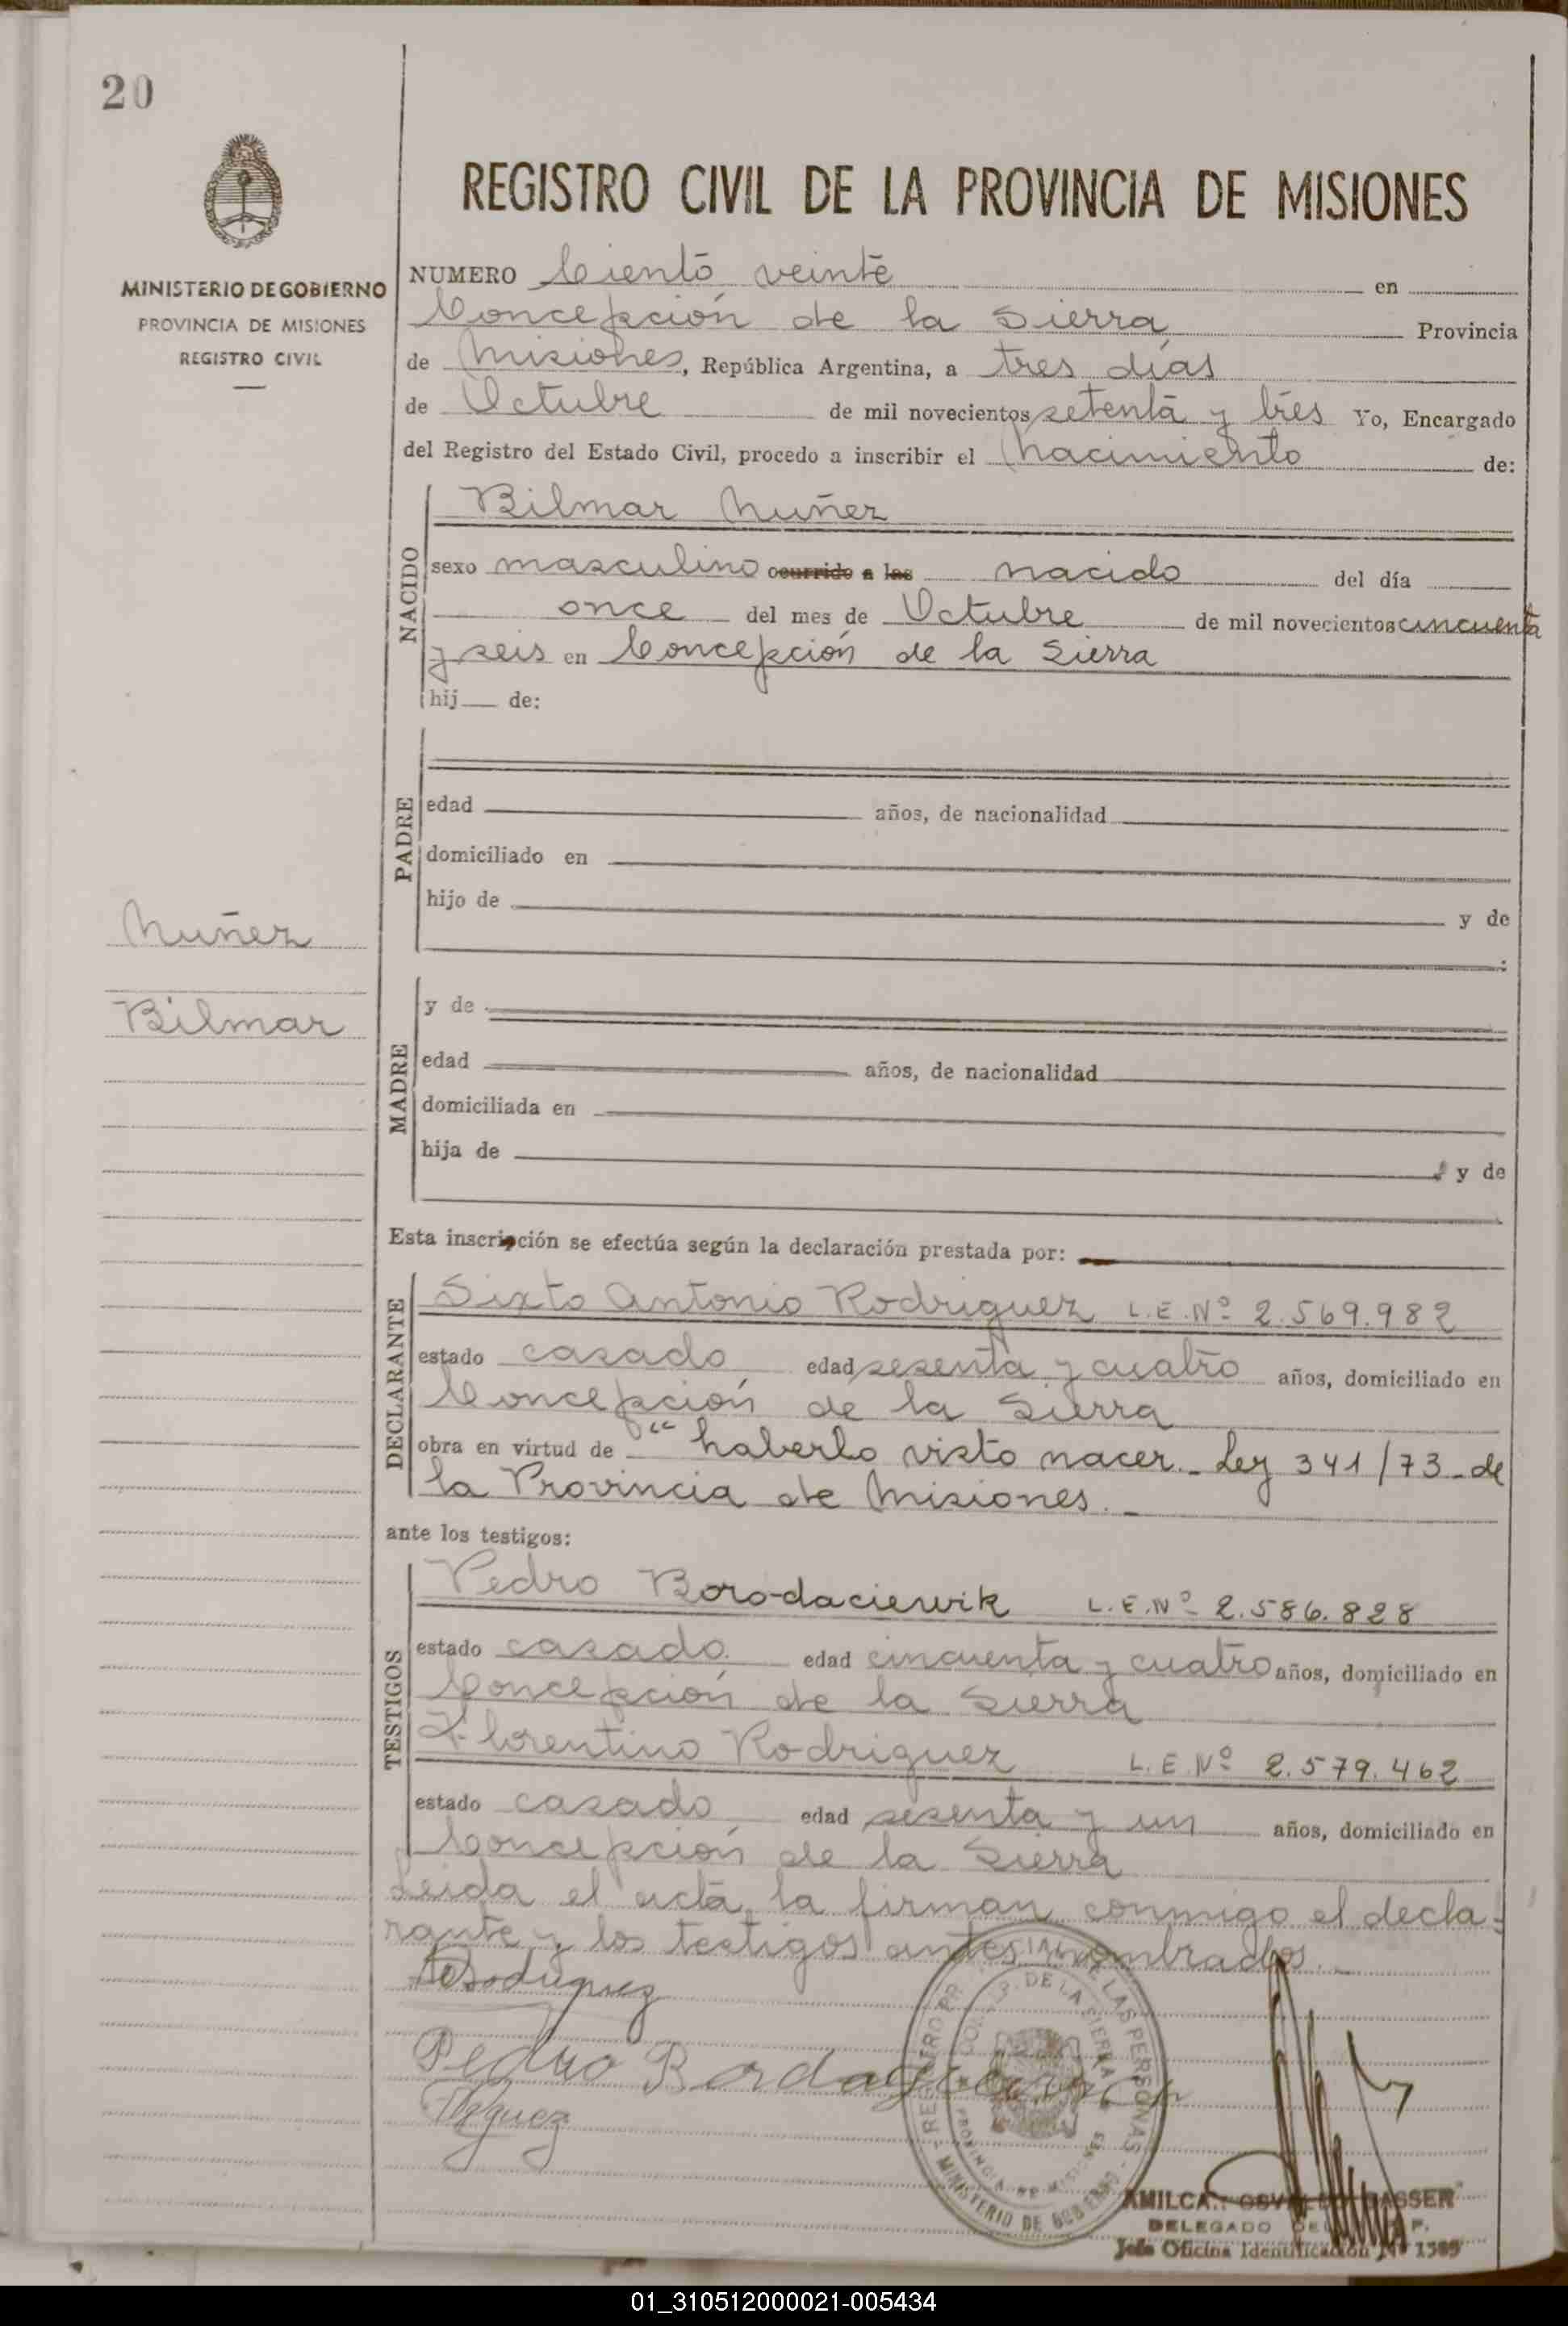 20
REGISTRO CIVIL DE LA PROVINCIA DE MISIONES
MINISTERIO DE GOBIERNO
PROVINCIA DE MISIONES
REGISTRO CIVIL
NUMERO Ciento veinte en
Concepción de la Sierra Provincia
de Misiones, República Argentina, a tres días
de Octubre de mil novecientos setenta y tres Yo, Encargado
del Registro del Estado Civil, procedo a inscribir el Nacimiento de:
NACIDO
Bilmar Nuñez
sexo masculino ocurrido a las nacido del día
once del mes de Octubre de mil novecientos cincuenta
y seis en Concepción de la Sierra
hij de:
PADRE
edad años, de nacionalidad
domiciliado en
hijo de y de
Nuñez
Bilmar
MADRE
y de
edad años, de nacionalidad
domiciliada en
hija de y de
Esta inscripción se efectúa según la declaración prestada por:
DECLARANTE
Sixto Antonio Rodriguez L.E.Nº 2.569.982
estado casado edad sesenta y cuatro años, domiciliado en
Concepción de la Sierra
obra en virtud de " haberlo visto nacer.- Ley 341/73- de
la Provincia de Misiones.-
ante los testigos:
TESTIGOS
Pedro Borodaciewik L.E.Nº 2.586.828
estado casado. edad cincuenta y cuatro años, domiciliado en
Concepción de la Sierra
Florentino Rodriguez L.E.Nº 2.579.462
estado casado edad sesenta y un años, domiciliado en
Concepción de la Sierra
Leida el acta, la firman conmigo el decla-
rante y los testigos antes nombrados.-
Rodriguez
Pedro
REGISTRO PROVINCIAL DE LAS PERSONAS
MINISTERIO DE GOBIERNO
DE LA SIERRA
PROVINCIA DE MISIONES
AMILCAR OSVALDO GASSER
DELEGADO DEL
Jefe Oficina Identificación Nº 1385
01_310512000021-005434